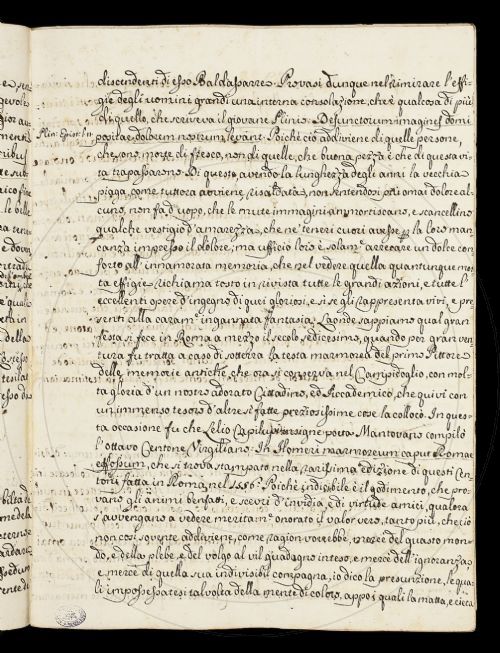 discendenti di esso Baldassarre. Provasi dunque nel rimirare l'effi-
gie degli uomini grandi una interna consolazione, ch'è qualcosa di più
di quello, che scriveva il giovane Plinio. Defunctorum imagines domi
Plin. Epist.
positae dolorem nostrum levant. Poichè ciò addiviene di quelle persone,
che sono morte di fresco, non di quelle, che buona pezza è che di questa vi-
ta trapassarono. Di questo avendo la lunghezza degli anni la vecchia
piaga, come tuttora avviene, risaldata, non sentendosi più omai dolore al-
cuno, non fa d'uopo, che le mute immagini ammortiscano, e scancellino
qualche vestigio d'amarezza, che ne' teneri cuori avesse per la loro man-
canza impresso il dolore; ma ufficio loro è solam.e arrecare un dolce con-
forto all'innamorata memoria, che nel vedere quella quantunque mor-
ta effigie richiama tosto in rivista tutte le grandi azioni, e tutte l'
eccellenti opere d'ingegno di quei gloriosi, e si se gli rappresenta vivi, e pre-
senti alla caram. ingannata fantasia. Laonde sappiamo qual gran
festa si fece in Roma a mezzo il secolo sedicesimo, quando per gran ven-
tura fu tratta a capo di sotterra la testa marmorea del primo Pittore
delle memorie antiche, che ora si conserva nel Campidoglio, con mol-
ta gloria d'un nostro adorato Cittadino, ed Accademico, che quivi con
un immenso tesoro d'altre sì fatte preziosissime cose la collocò. In ques-
ta occasione fu che Lelio Capilupi insigne poeta Mantovano compilò
l'ottavo Centone Virgiliano. In Homeri marmoreum caput Romae
effossum, che si trova stampato nella rarissima edizione di questi Cen-
toni fatta in Roma nel 1556. Poichè indicibile è il godimento, che pro-
vano gli animi benfatti, e scevri d'invidia, e di virtude amici, qualora
s'avvengano a vedere meritam.e onorato il valor vero, tanto più, che ciò
non così sovente addiviene, come ragion vorrebbe, mercè del guasto mon-
do, e della plebe, e del volgo al vil guadagno inteso, e mercè dell'ignoranza,
e mercè di quella sua indivisibil compagna, io dico la presunzione, le qua-
li impossessatesi talvolta della mente di coloro, appo i quali la matta, e cieca